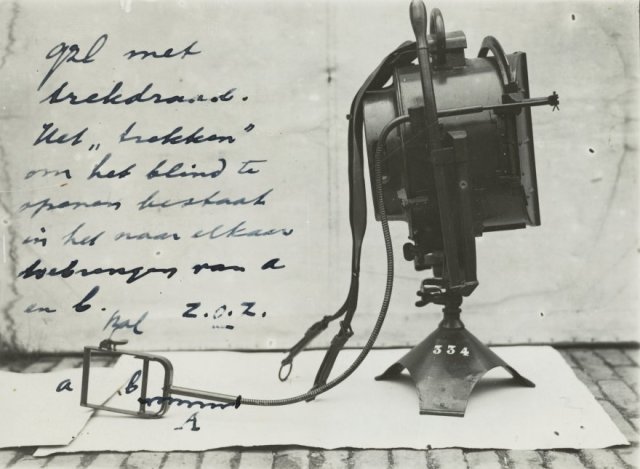 met
trekdraad.
Het „trekken"
om het blind te
openen bestaat
in het naar elkaar
toebrengen van a
en b. z.o.z.
a b
A
334